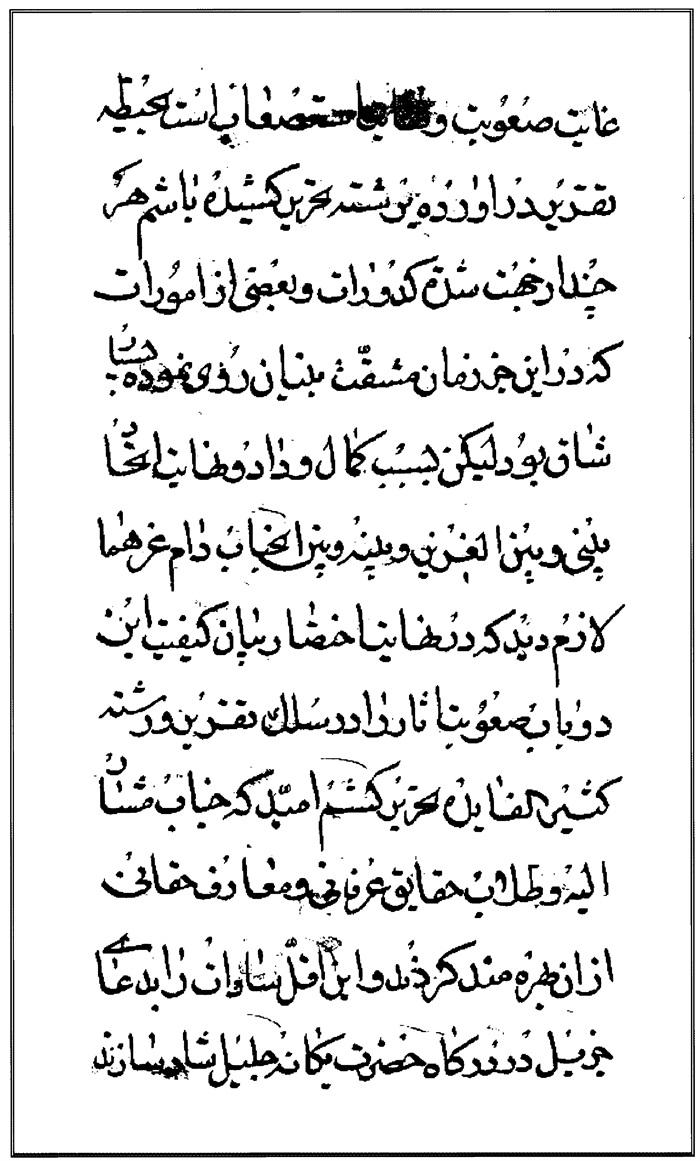 غایت صعوبت و استصعاب است بحیطه
تقریر در اورده بررشته تحریر کشیده باشم هر
چند از جهت شدة کدورات و بعضی از امورات
که در این جزو زمان مشقّت بنیان روی نموده بسیار
شاق بود لیکن بسبب کمال وداد و نهایت اتحاد
بینی و بین العزیز و بینه و بین الجناب دام عزهما
لازم دید که در نهایت اختصار بیان کیفیت این
دو باب صعوبت اثار را در سلک تقریر و رشته
کثیر الفایده تحریر کشم امید که جناب مشار
الیه و طلاب حقایق عرفانی و معارف حقانی
از ان بهره مند کردند و این اقل سادات را بدعای
جزیل در درکاه حضرت یکانه جلیل شاد سازند